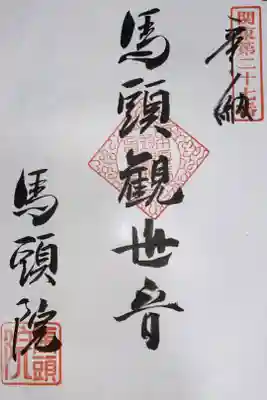 関東第二十七番
奉納
馬頭観世音
馬頭院
馬頭院